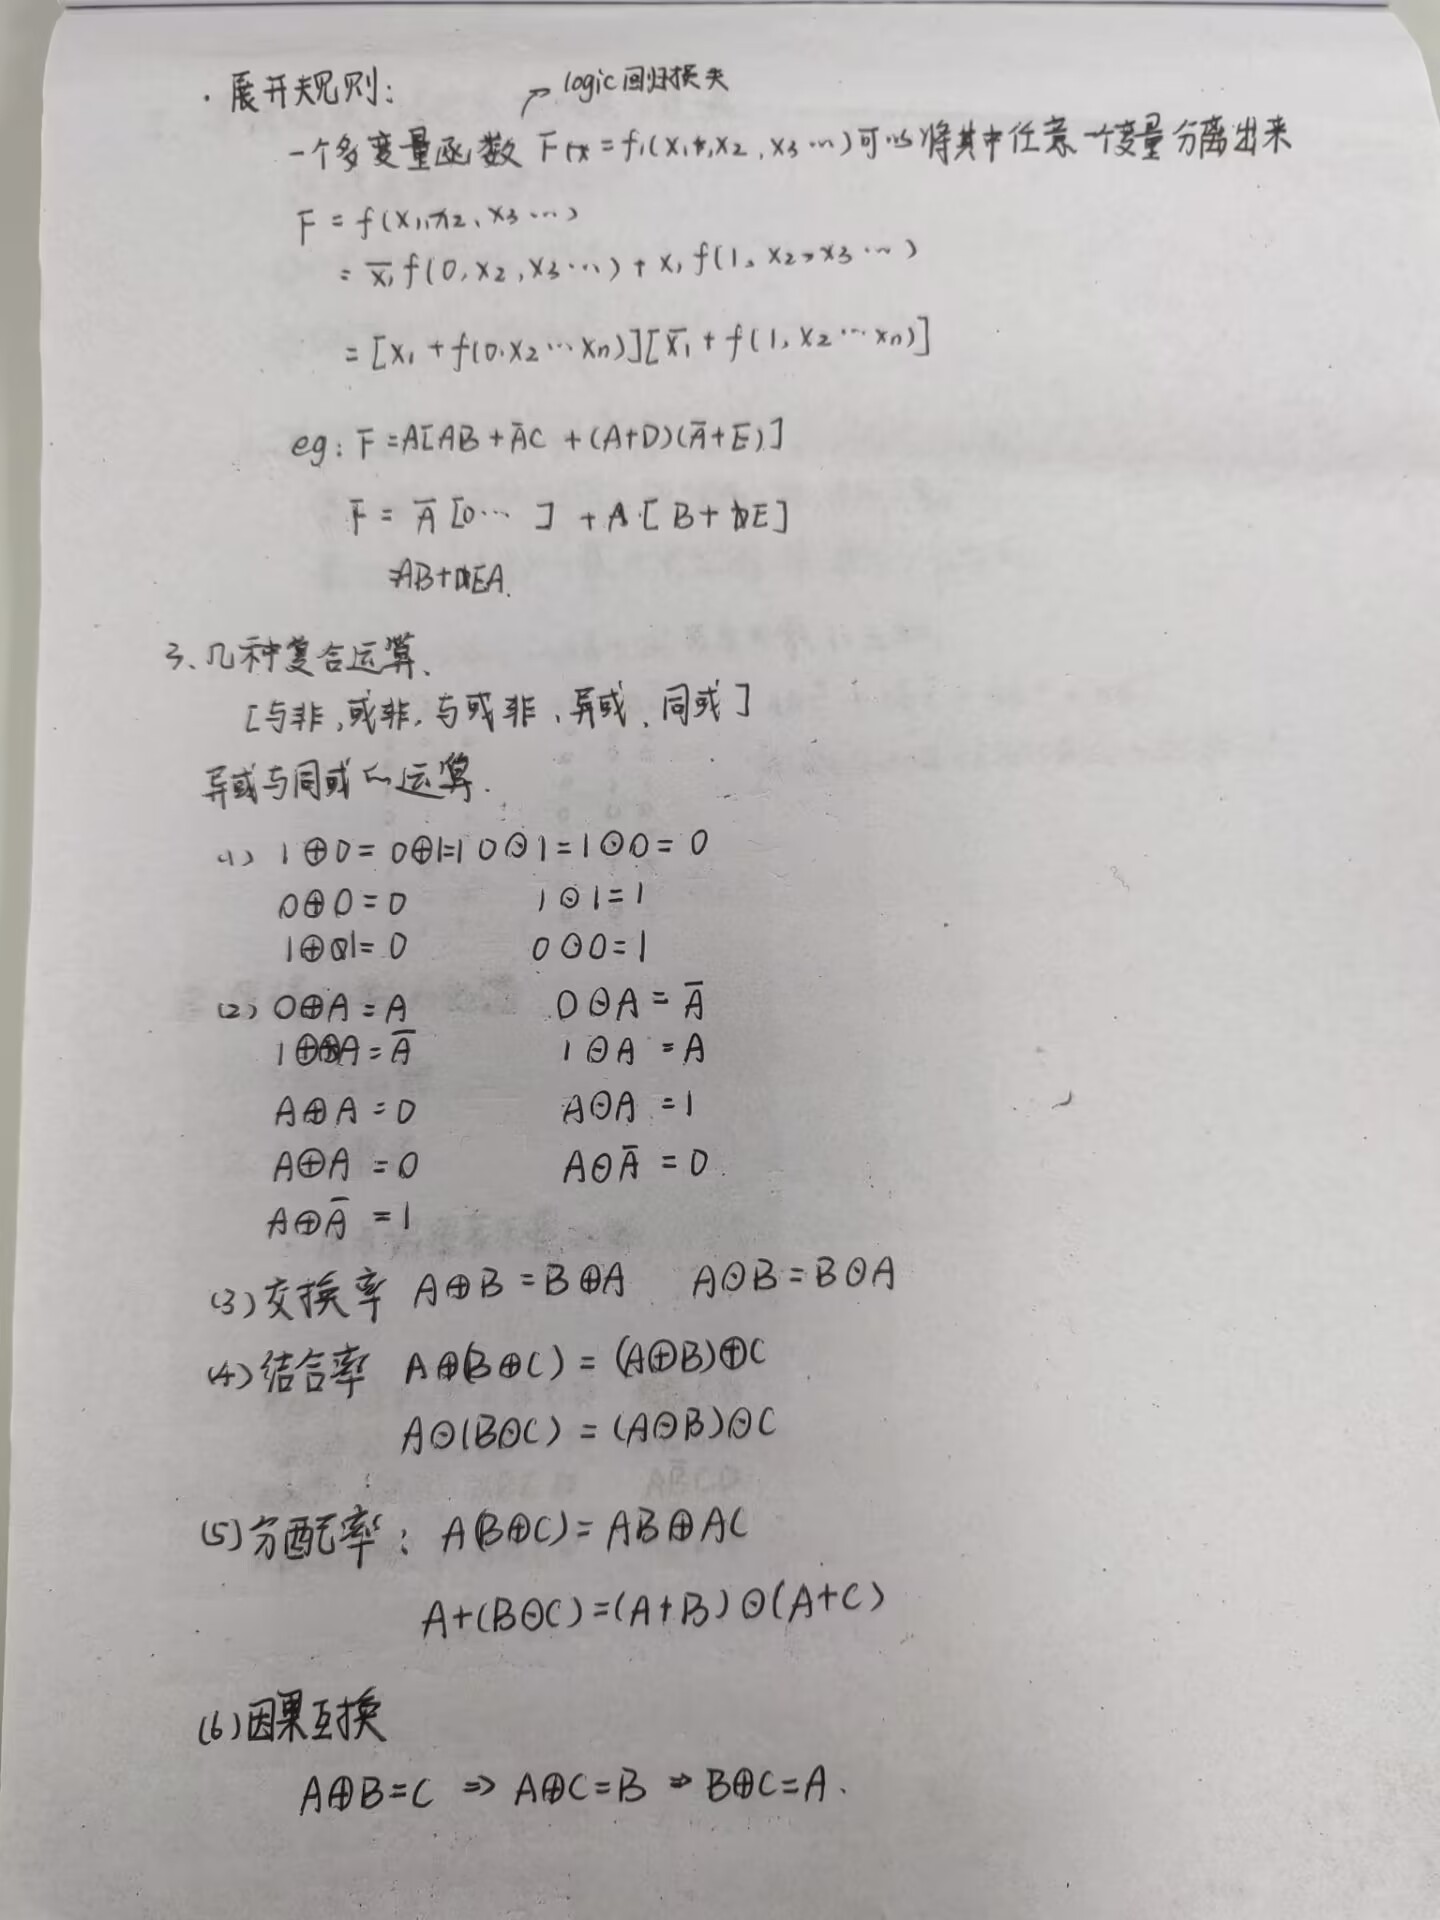 · 展开规则:
logic回归损失
一个多变量函数 F = f(x₁,x₂,x₃…)可以将其中任意一个变量分离出来
F = f(x₁,x₂,x₃…)
= x̅₁f(0,x₂,x₃…) + x₁f(1,x₂,x₃…)
= [x₁ + f(0.x₂…xn)][x̅₁ + f(1,x₂…xn)]
eg: F =A[AB + A̅C + (A+D)(A̅+E)]
F = A̅ [0… ] + A·[ B + E]
=AB+EA.
3、几种复合运算、
[与非,或非,与或非,异或、同或]
异或与同或的运算.
(1) 1⊕0 = 0⊕1=1 0⊙1 = 1⊙0 = 0
0⊕0 = 0 1⊙1=1
1⊕1= 0 0⊙0=1
(2) 0⊕A = A 0⊙A = A̅
1⊕A = A̅ 1⊙A = A
A⊕A = 0 A⊙A = 1
A⊕A = 0 A⊙A̅ = 0
A⊕A̅ = 1
(3)交换率 A⊕B = B⊕A A⊙B = B⊙A
(4)结合率 A⊕(B⊕C) = (A⊕B)⊕C
A⊙(B⊙C) = (A⊙B)⊙C
(5)分配率: A(B⊕C)= AB⊕AC
A+(B⊙C)=(A+B)⊙(A+C)
(6)因果互换
A⊕B=C ⇒ A⊕C=B ⇒ B⊕C=A.